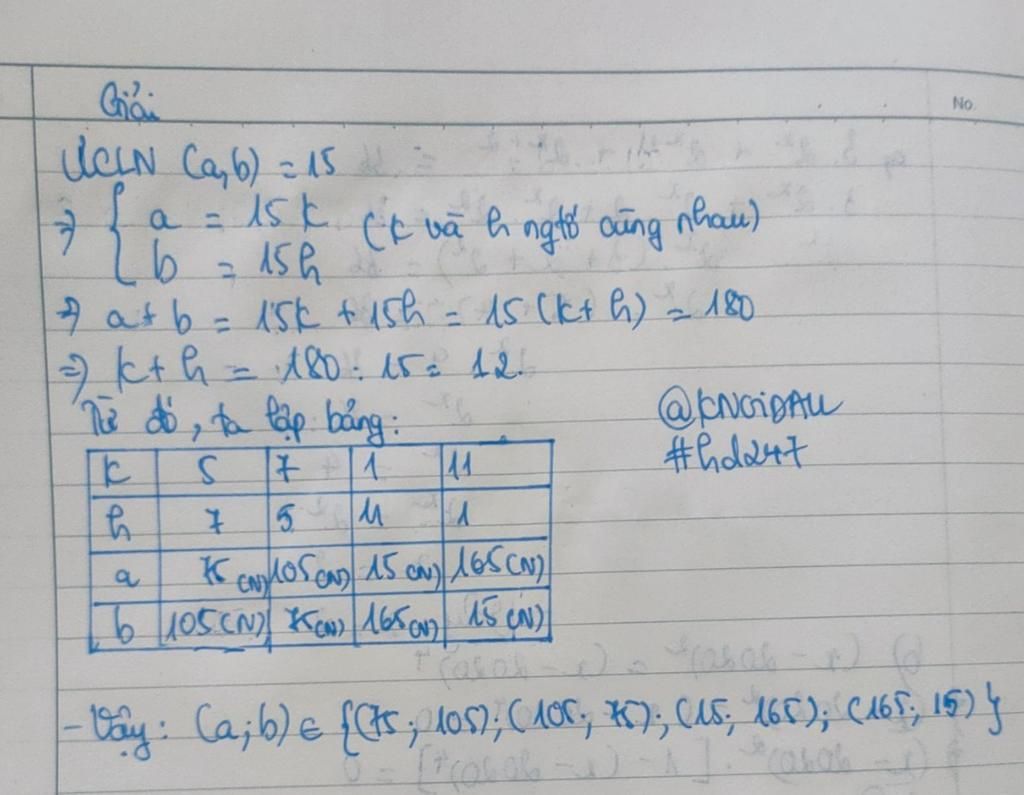 Giải
No.
ƯCLN (a,b) = 15
=> { a = 15k (k và h ngtố cùng nhau)
b = 15h
=> a + b = 15k + 15h = 15 (k + h) = 180
=> k + h = 180 : 15 = 12.
Từ đó, ta lập bảng:
@KNGiDAU
#hd247
k 5 7 1 11
h 7 5 11 1
a 75 (N) 105 (N) 15 (N) 165 (N)
b 105 (N) 75 (N) 165 (N) 15 (N)
- Vậy: (a;b) ∈ {(75; 105); (105; 75); (15; 165); (165; 15)}